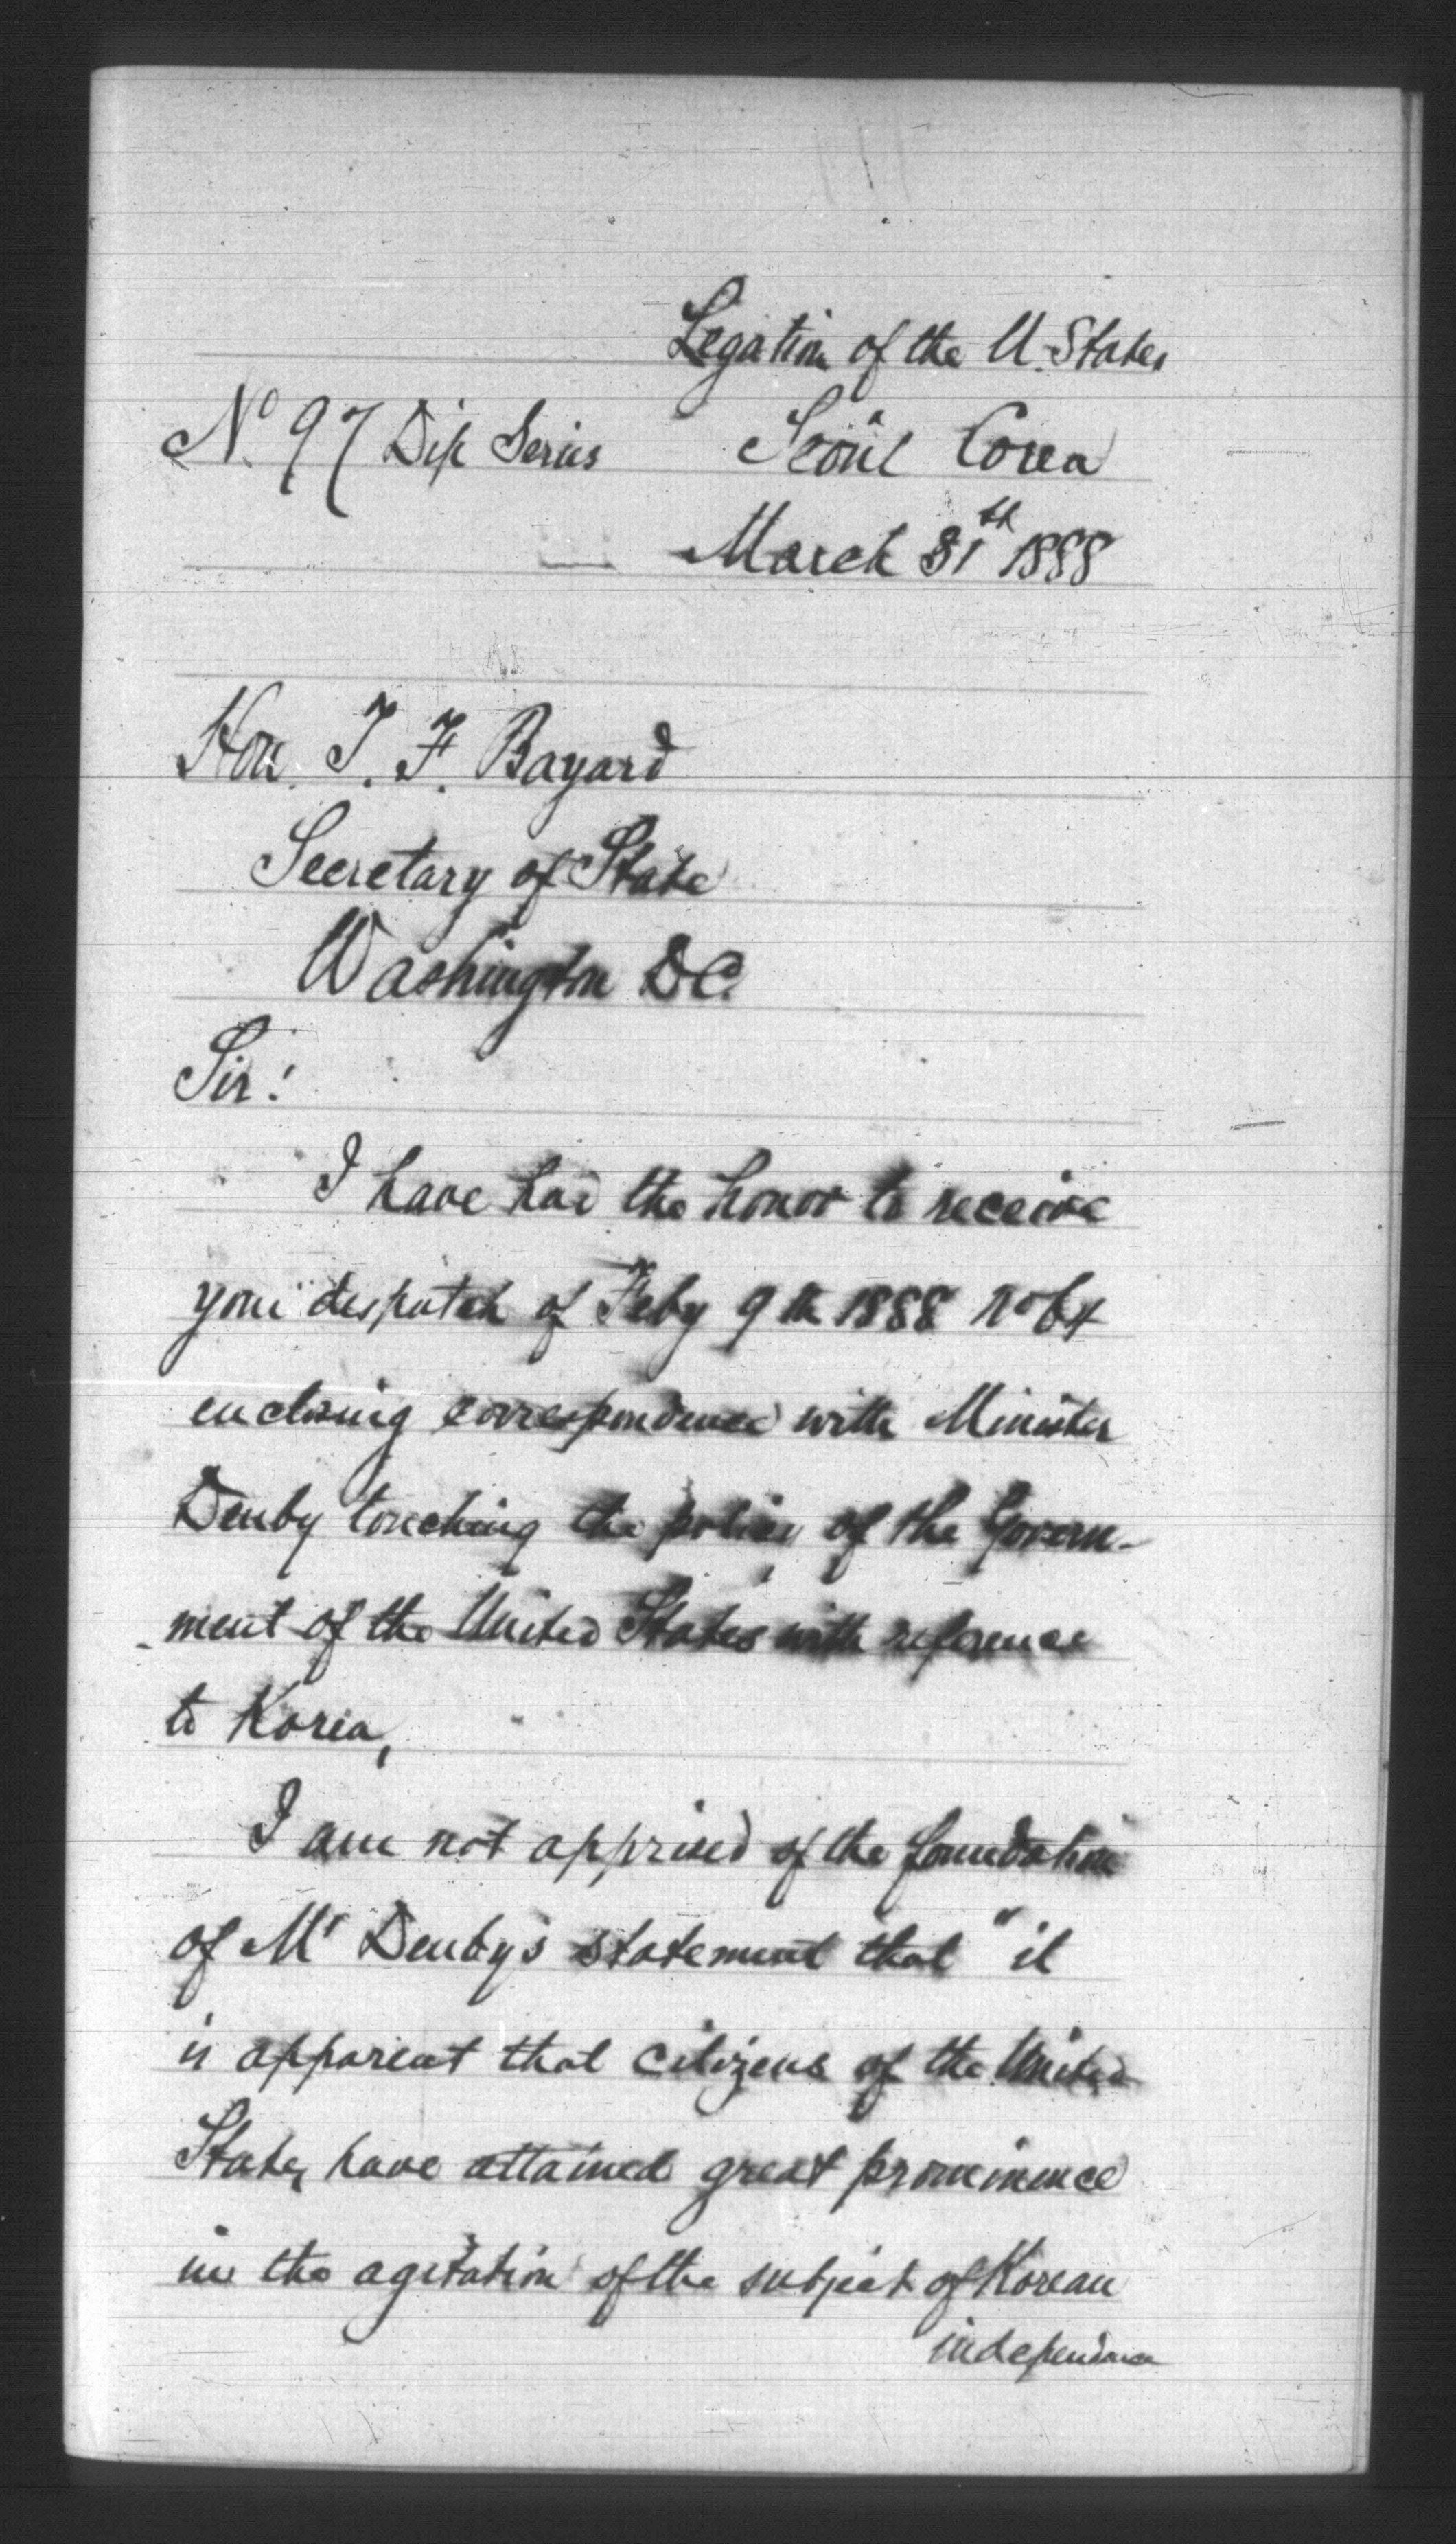 Legation of the U. States
No. 97 Dip Series Seoul Corea
March 31th 1888
Hon. T. F. Bayard
Secretary of State
Washington D.C.
Sir!
I have had the honor to receive
your despatch of Feby 9th 1888 No 64
enclosing correspondence with Minister
Denby touching the policy of the Govern-
ment of the United States with reference
to Korea,
I am not apprised of the foundation
of Mr Denby's statement that "it
is apparent that citizens of the United
States have attained great prominence
in the agitation of the subject of Korean
independence